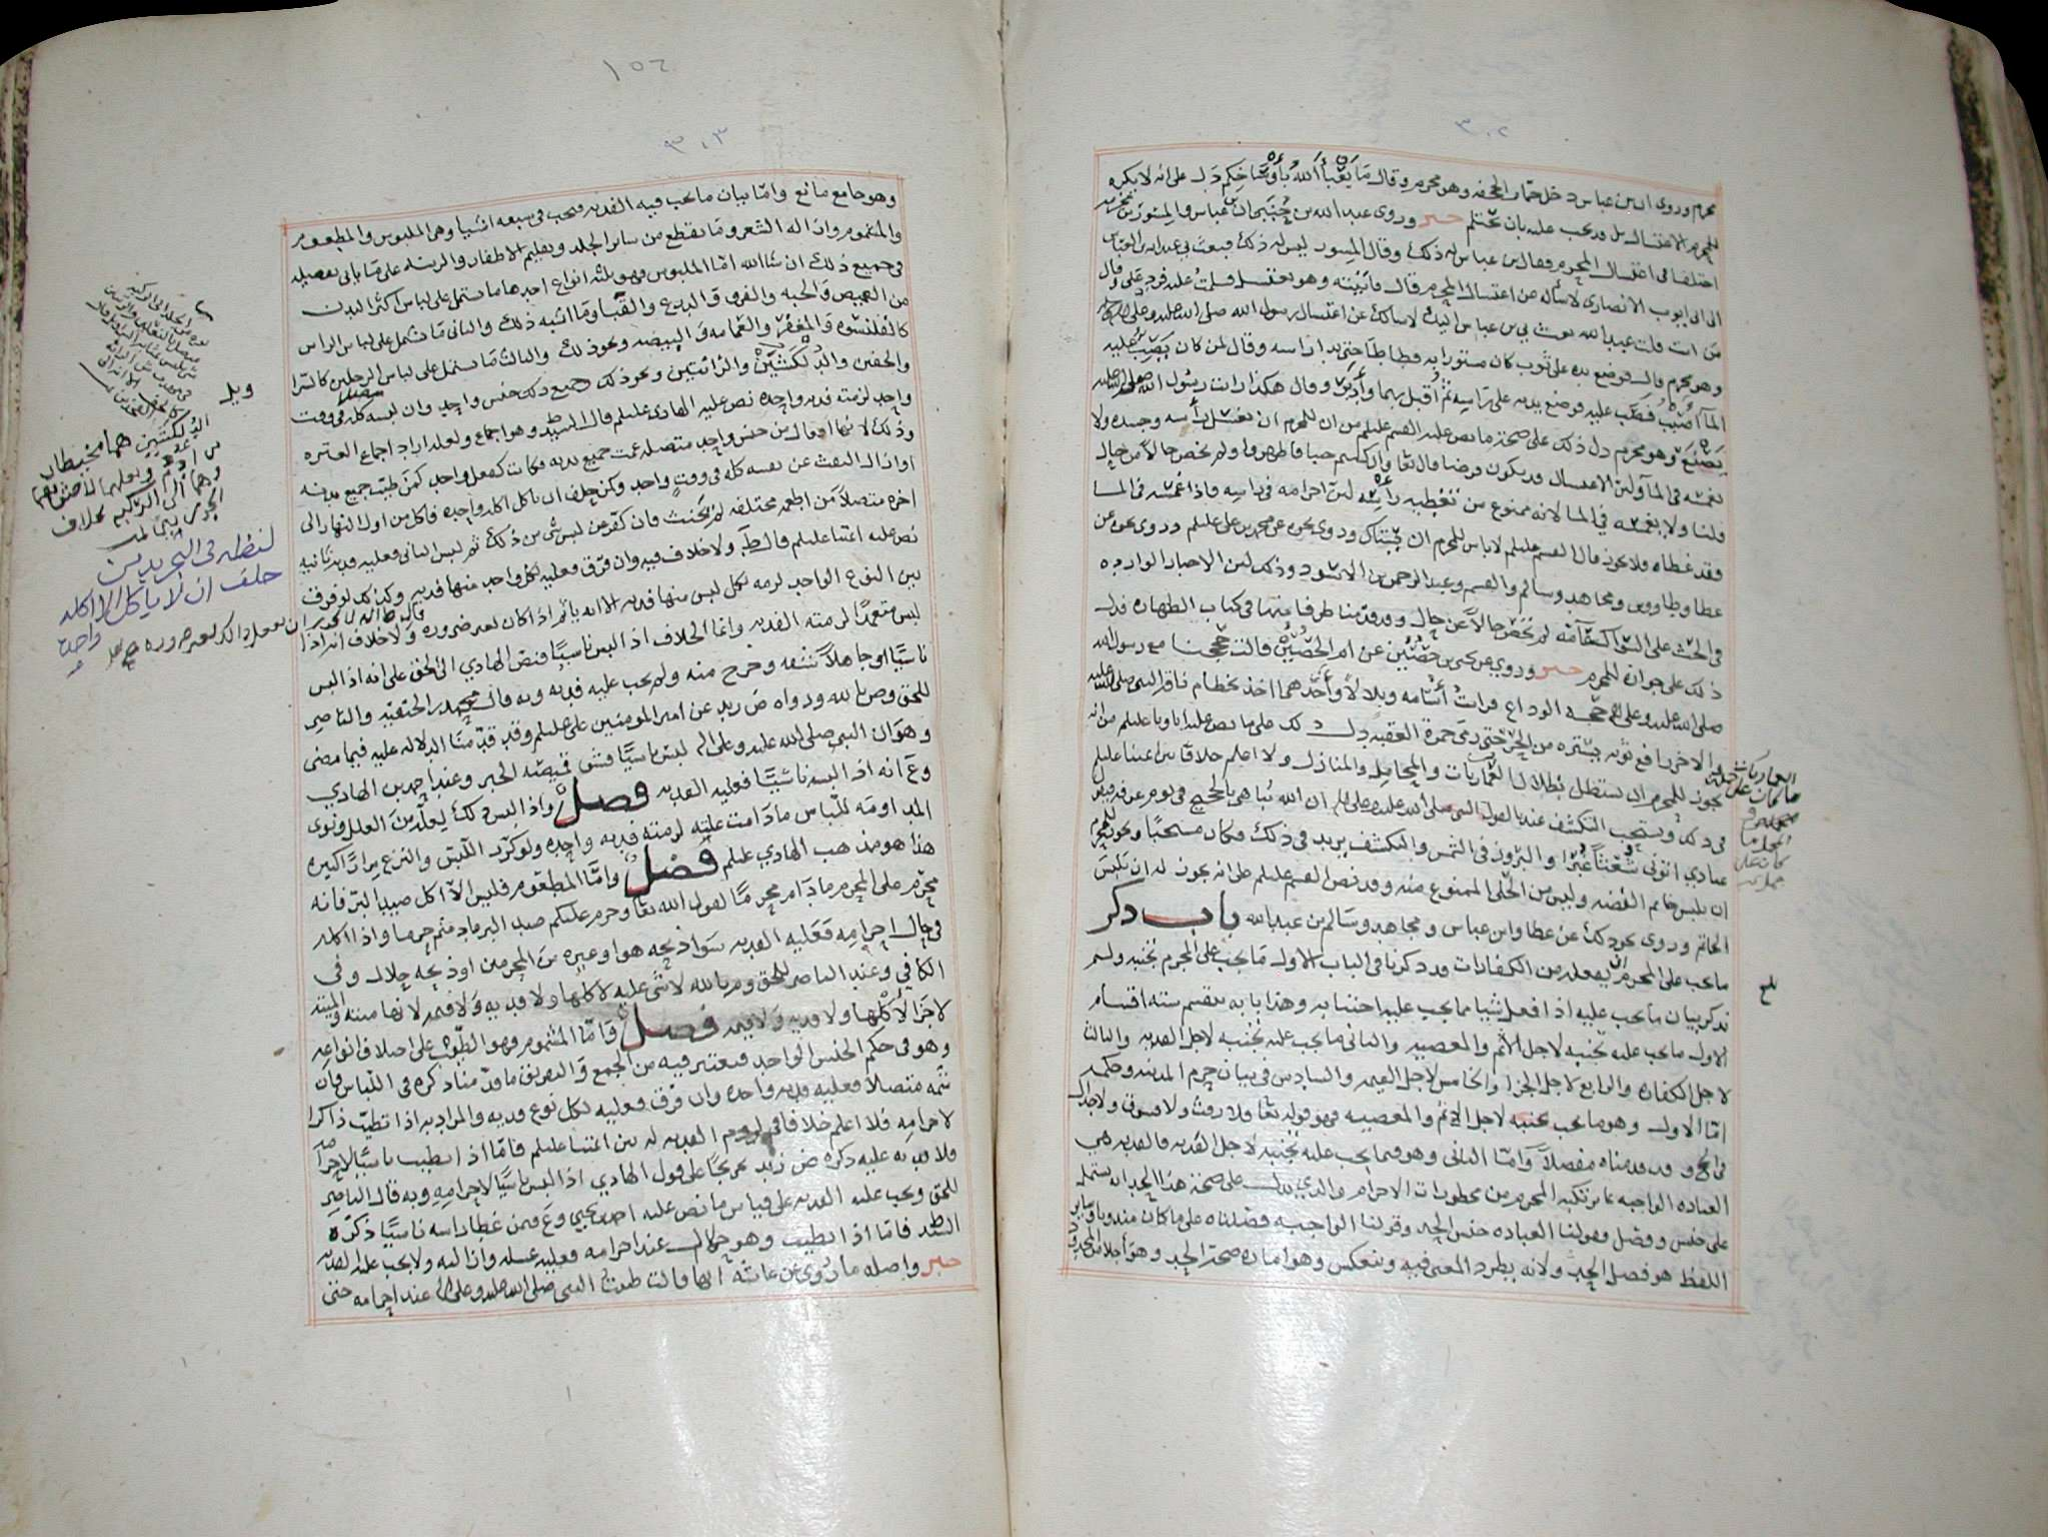 ٣٠٢
محرم وروي ان ابن عباس دخل حمام الجحفه وهو محرم وقال ما يعبأ الله بأوساخكم دل على انه لا يكره
للمحرم الاغتسال بل قد يجب عليه بان يحتلم خبر وروى عبد الله بن حنين ان ابن عباس والمسور بن مخرمه
اختلفا في اغتسال المحرم فقال ابن عباس له ذلك وقال المسور ليس له ذلك فبعث بي عبد الله بن العباس
الى ابي ايوب الانصاري لاسأله عن اغتسال المحرم قال فأتيته وهو يغتسل فسلمت عليه فرد علي وقال
من انت قلت عبد الله بعث بي ابن عباس اليك لاسالك عن اغتسال رسول الله صلى الله عليه وعلى اله
وهو محرم قال فوضع يده على ثوب كان مستورا به فطاطا حتى بدا راسه وقال لمن كان يصب عليه
الما اصبب فصب عليه فوضع يديه على راسه ثم اقبل بهما وادبر وقال هكذا رايت رسول الله صلى الله عليه
يصنع وهو محرم دل ذلك على صحة ما نص عليه القسم عليلم من ان للمحرم ان يغسل راسه وجسده ولا
يغمسه في الما ولان الاغتسال قد يكون فرضا قال تعا وان كنتم جنبا فاطهروا ولم يخص حالا من حال
قلنا ولا يغمسه في الما لانه ممنوع من تغطيه رأسه لان احرامه في راسه فاذا غمسه في الما
فقد غطاه فلا يجوز قال القسم عليلم لا باس للمحرم ان يستاك وروي نحوه عن محمد بن علي عليلم وروي نحوه عن
عطا وطاووس ومجاهد وسالم والقسم وعبد الرحمن بن الاسود وذلك لان الاخبار الوارده
في الحث على السواك عامة لم تخص حالا عن حال وقد قدمنا طرفا منها في كتاب الطهاره فدل
ذلك على جوازه للمحرم خبر وروي عن يحيى بن حصين عن ام الحصين قالت حججنا مع رسول الله
صلى الله عليه وعلى اله حجه الوداع فرايت أسامه وبلالا وأحدهما اخذ بخطام ناقة النبي صلى الله عليه
والاخر رافع ثوبه يستره من الحر حتى رمى جمرة العقبه دل ذلك على ما نص عليه ابا ونا عليلم من انه
يجوز للمحرم ان يستظل بظلال العماريات والمحامل والمنازل ولا اعلم خلافا بين ائمتنا عليلم
في ذلك ويستحب التكشف عندنا لقول النبي صلى الله عليه وعلى اله ان الله يباهي بالحجيج في يوم عرفه فيقول
عبادي اتوني شعثا غبرا والبروز في الشمس والتكشف يزيد في ذلك فكان مستحبا ويجوز للمحرم
ان يلبس خاتم الفضه وليس من الحلي الممنوع منه وقد نص القسم عليلم على انه يجوز له ان يلبس
الخاتم وروي نحو ذلك عن عطا وابن عباس ومجاهد وسالم بن عبد الله باب ذكر
ما يجب على المحرم ان يفعله من الكفارات قد ذكرنا في الباب الاول ما يجب على المحرم تجنبه ولم
نذكر بيان ما يجب عليه اذا فعل شيا مما يجب عليه اجتنابه وهذا بابه ينقسم سته اقسام
الاول ما يجب عليه تجنبه لاجل الاثم والمعصيه والثاني ما يجب عليه تجنبه لاجل الفديه والثالث
لاجل الكفاره والرابع لاجل الجزا والخامس لاجل القيمه والسادس في بيان حرم المدينه وحكمه
اما الاول وهو ما يجب تجنبه لاجل الاثم والمعصيه فهو قوله تعا فلا رفث ولا فسوق ولا جدال
في الحج وقد قدمناه مفصلا واما الثاني وهو فيما يجب عليه تجنبه لاجل الفديه فالفديه هي
العباده الواجبه بما يرتكبه المحرم من محظورات الاحرام والذي يدل على صحة هذا الحد انه يشتمل
على جنس وفصل فقولنا العباده جنس الحد وقولنا الواجبه فصلناه على ما كان مندوبا وساير
اللفظ هو فصل الحد ولانه يطرد المعنى فيه وينعكس وهو اماره صحة الحد وهو اجلا من المحدود
١٥٢
٣٠٣
وهو جامع مانع واما بيان ما يجب فيه الفديه فيجب في سبعه اشيا وهي الملبوس والمطعوم
والمشموم وازاله الشعر وما يقطع من ساير الجلد وتقليم الاظفار والزينه على ما ياتي تفصيله
في جميع ذلك ان شا الله اما الملبوس فهو ثلثه انواع احدها ما يشتمل على لباس اكثر البدن
من القميص والجبه والفرو والدرع والقبا وما اشبه ذلك والثاني ما يشتمل على لباس الراس
كالقلنسوه والمغفر والعمامه والبيضه ونحو ذلك والثالث ما يشتمل على لباس الرجلين كالسرا
والخفين والدلكشين والرانتين ونحو ذلك جميع ذلك جنس واحد وان لبسه كله في وقت
واحد لزمته فديه واحده نص عليه الهادي عليلم قال السيد ط وهو اجماع ولعله اراد اجماع العتره
وذلك لانها افعال من جنس واحد متصله عمت جميع بدنه فكانت كفعل واحد كمن طيب جميع بدنه
او ازال التفث عن نفسه كله في وقت واحد وكمن حلف ان ياكل اكله واحده فاكل من اول النهار الى
اخره متصلا من اطعمه مختلفه لم يحنث فان كفر عن لبس شي من ذلك ثم لبس الثاني فعليه فديه ثانيه
نص عليه ائمتنا عليلم قال ط ولا خلاف فيه وان فرق فعليه لكل واحد منها فديه وكذلك لو فرق
بين النوع الواحد لزمه لكل لبس منها فديه الا انه ياثم اذا كان لغير ضروره ولا خلاف انه اذا
لبس متعمدا لزمته الفديه وانما الخلاف اذا لبس ناسيا فنص الهادي الى الحق على انه اذا لبس
ناسيا او جاهلا شقه وخرج منه ولم يجب عليه فديه وبه قال محمد بن الحنفيه والناصر
للحق وص بالله ورواه ض زيد عن امير المومنين علي عليلم وقد قدمنا الدلاله عليه فيما مضى
وهو ان النبي صلى الله عليه وعلى اله لبس ناسيا فشق قميصه الخبر وعند احمد بن الهادي
وع انه اذا لبسه ناسيا فعليه الفديه فصل واذا لبس ذلك لعله من العلل ونوى
المداومه للباس ما دامت علته لزمته فديه واحده ولو كرر اللبس والنزع مرارا كثيره
هذا هو مذهب الهادي عليلم فصل واما المطعوم فليس الا اكل صيد البر فانه
محرم على المحرم ما دام محرما لقول الله تعا وحرم عليكم صيد البر ما دمتم حرما واذا اكله
في حال احرامه فعليه الفديه سوا ذبحه هو او غيره من المحرمين او ذبحه حلال وفي
الكافي وعند الناصر للحق وص بالله لا شي عليه لاكلها ولا فديه ولا قيمه لانها ميته والميته
لا جزا لأكلها ولا فديه ولا قيمه فصل فاما المشموم فهو الطيب على اختلاف انواعه
وهو في حكم الجنس الواحد فيعتبر فيه من الجمع والتفريق ما قدمنا ذكره في اللباس فان
شمه متصلا فعليه فديه واحده وان فرق فعليه لكل نوع فديه والمراد به اذا تطيب ذاكرا
لاحرامه فلا اعلم خلافا في لزوم الفديه له بين ائمتنا عليلم فاما اذا تطيب ناسيا لاحرامه
فلا فديه عليه ذكره ض زيد تخريجا على قول الهادي اذا لبس ناسيا لاحرامه وبه قال الناصر
للحق ويجب عليه الفديه على قياس ما نص عليه احمد بن يحيى وع فيمن غطا راسه ناسيا ذكره
السيد ط فاما اذا تطيب وهو حلال عند احرامه فعليه غسله وازالته ولا يجب عليه الفديه
خبر واصله ما روي عن عائشه انها قالت طيبت النبي صلى الله عليه وعلى اله عند احرامه حتى
الدلكشين هما مخيطان
لفظه في التجريد من
حلف ان لا ياكل الا اكله
واحدة